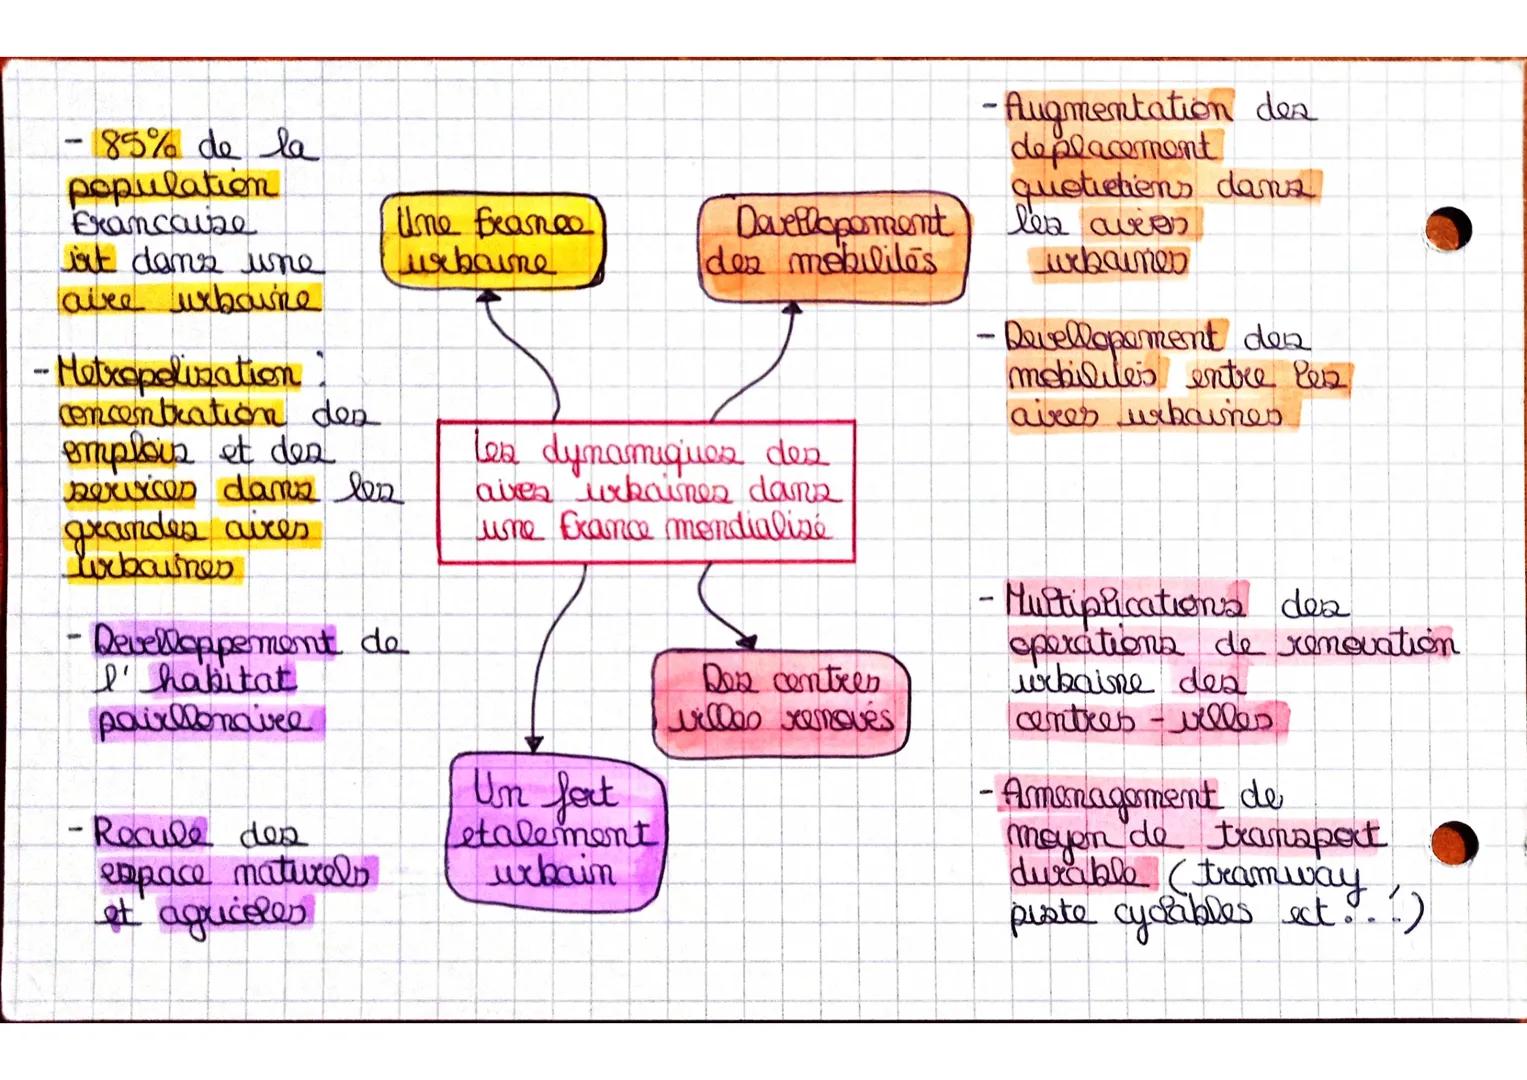 - 85% de la
population
francaise
vit dans une
aire urbaine
- Metropolisation :
concentration des
emplois et des
services dans les
grandes aires
urbaines
- Developpement de
l'habitat
pavillonaire
- Recule des
espace naturels
et agricoles
Une france
urbaine
Devellopement
des mobilités
les dynamiques des
aires urbaines dans
une france mondialisé
Des centres
villes renovés
Un fort
etalement
urbain
- Augmentation des
deplacement
quotidiens dans
les aires
urbaines
- Devellopement des
mobilités entre les
aires urbaines
- Multiplications des
operations de renovation
urbaine des
centres-villes
- Amenagement de
moyen de transport
durable (tramway,
piste cyclables ect...)